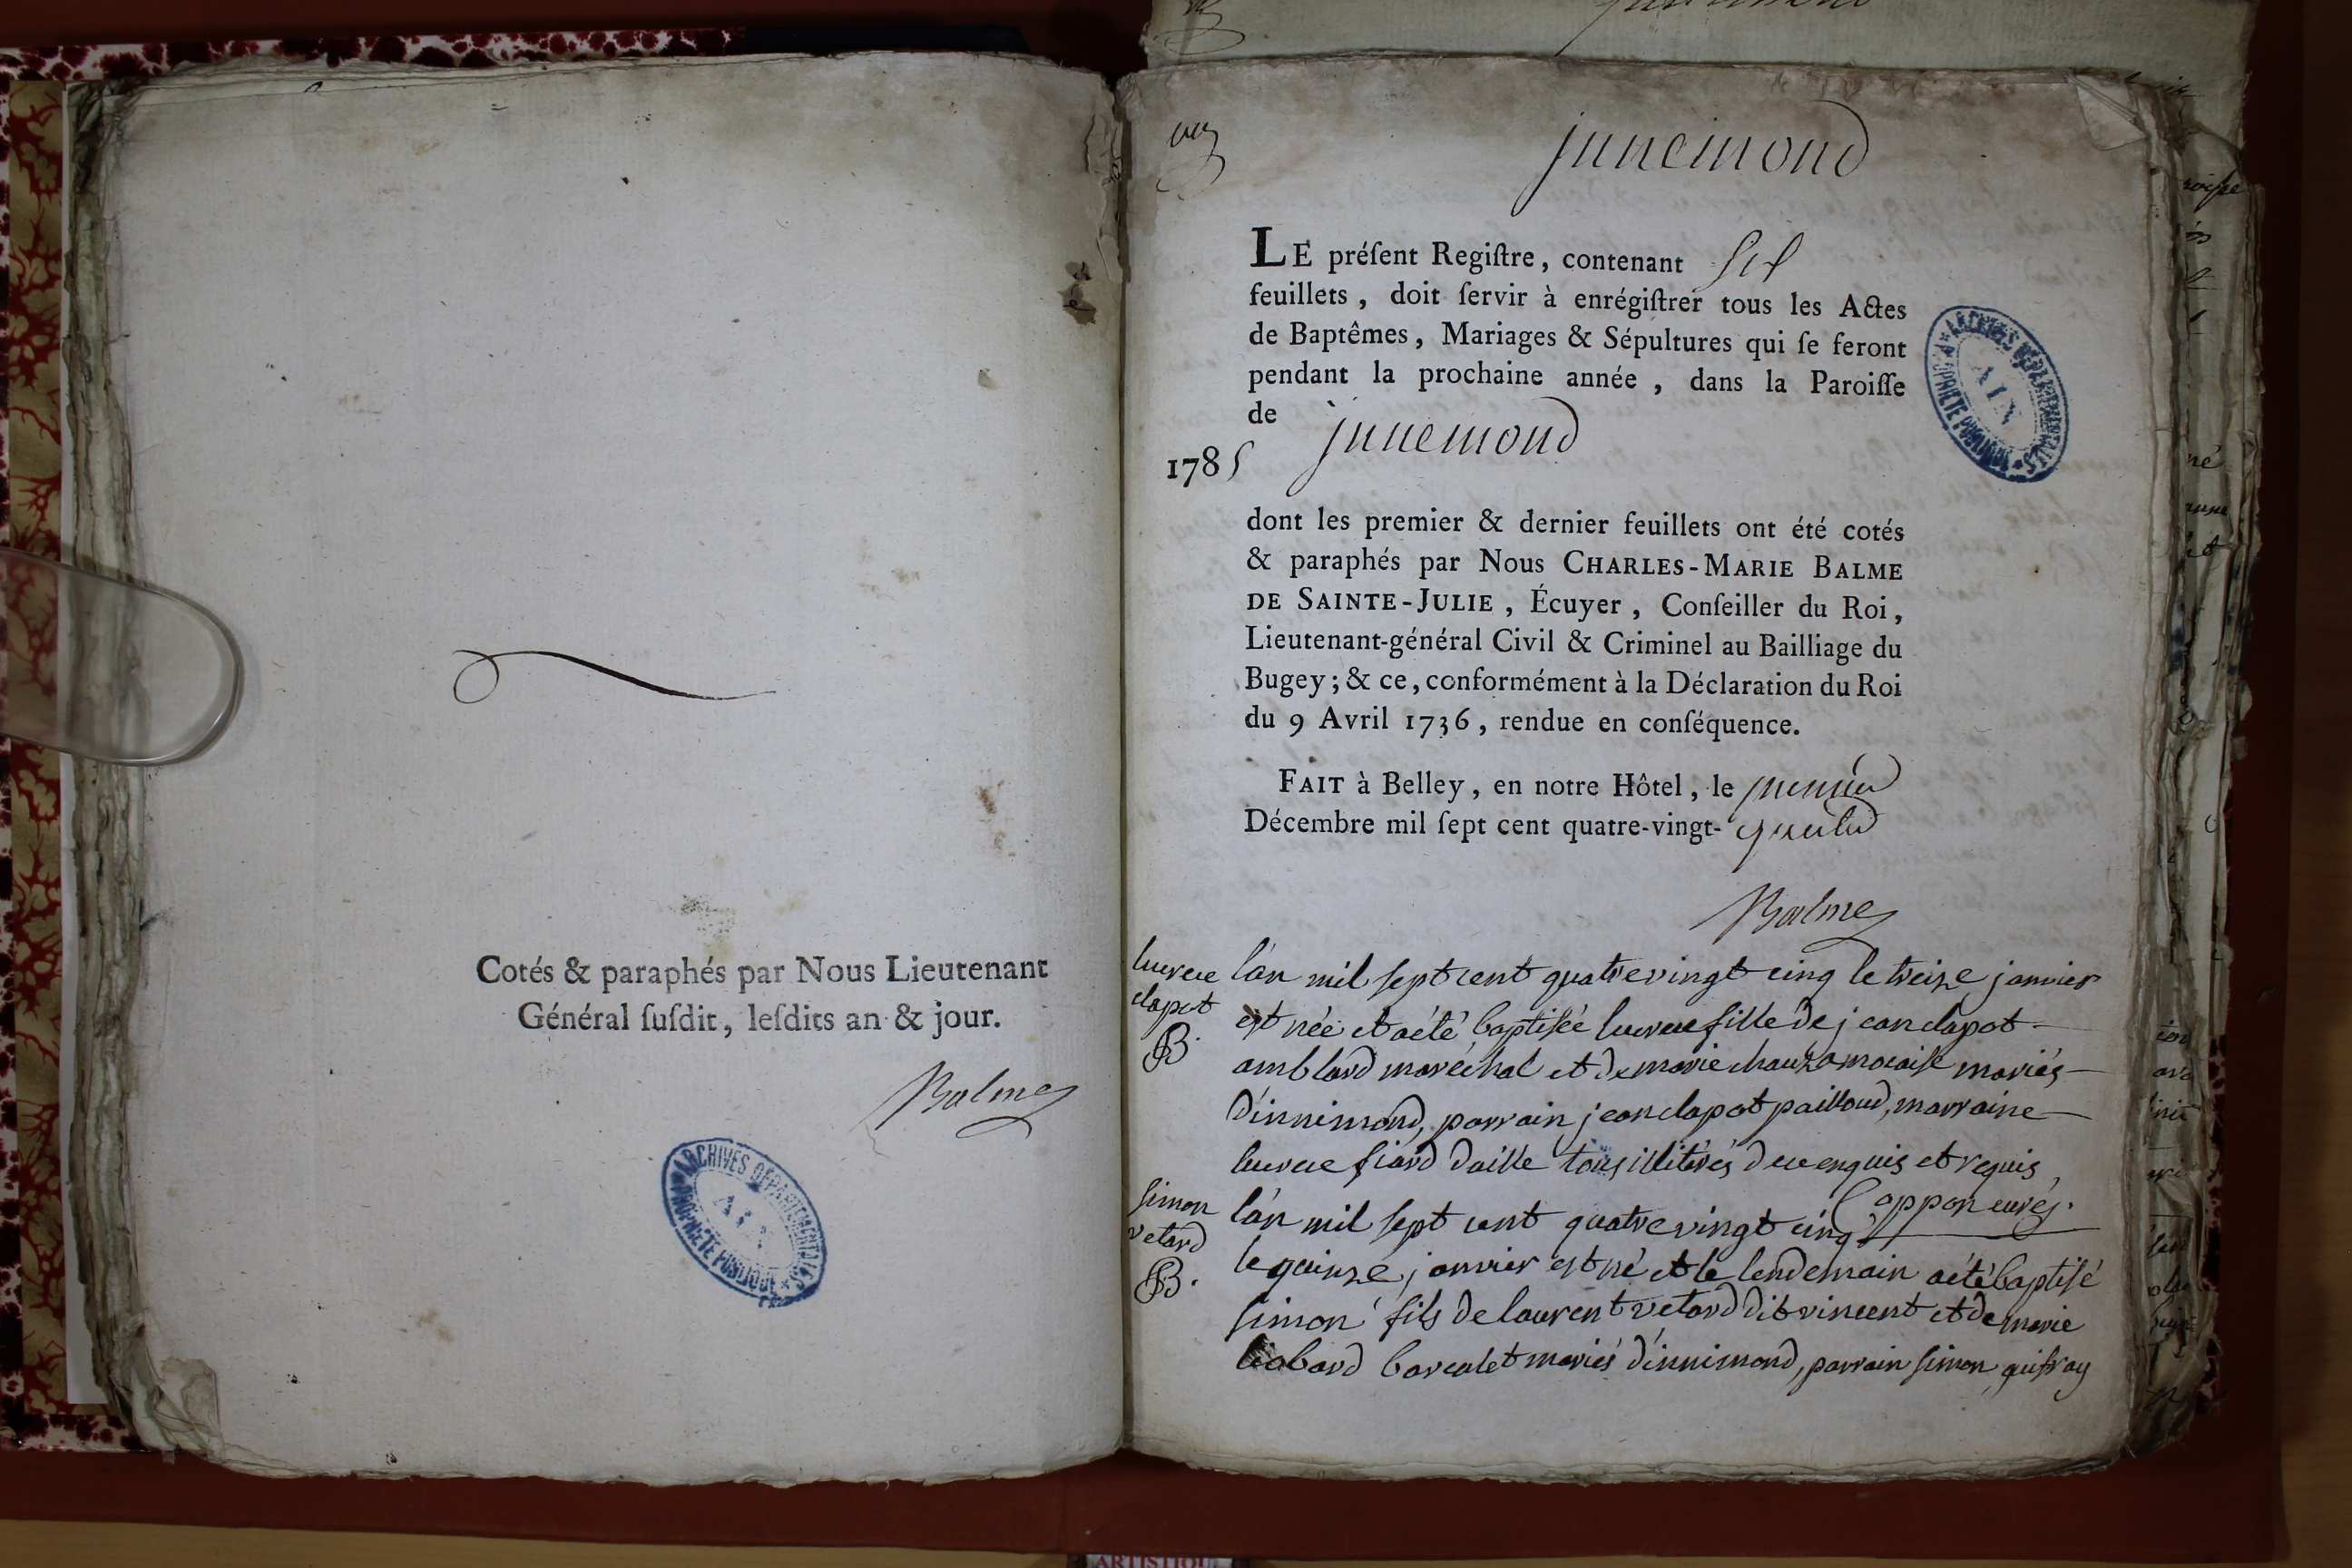 Cotés & paraphés par Nous Lieutenant
Général ſuſdit, leſdits an & jour.
Balme
ARCHIVES DÉPARTEMENTALES
AIN
PROPRIÉTÉ PUBLIQUE
junemond
LE préſent Regiſtre, contenant six
feuillets, doit ſervir à enrégiſtrer tous les Actes
de Baptêmes, Mariages & Sépultures qui ſe feront
pendant la prochaine année, dans la Paroiſſe
de junemond
1785
dont les premier & dernier feuillets ont été cotés
& paraphés par Nous CHARLES-MARIE BALME
DE SAINTE-JULIE, Écuyer, Conſeiller du Roi,
Lieutenant-général Civil & Criminel au Bailliage du
Bugey; & ce, conformément à la Déclaration du Roi
du 9 Avril 1736, rendue en conſéquence.
FAIT à Belley, en notre Hôtel, le premier
Décembre mil ſept cent quatre-vingt- quatre
Balme
ARCHIVES DÉPARTEMENTALES
AIN
PROPRIÉTÉ PUBLIQUE
lucrece
clapot
B.
l'an mil sept cent quatre vingt cinq le treize janvier
est née et a été baptisée lucrece fille de jean clapot
amblard maréchal et de marie mariés
d'innimond, parrain jean clapot pailloud, marraine
lucrece fiard daille tous illitérés de ce enquis et requis
Cappon curé.
simon
vetard
B.
l'an mil sept cent quatre vingt cinq
le quinze janvier est né et le lendemain a été baptisé
simon fils de laurent vetard dit vincent et de marie
liobard barcalet mariés d'innimond, parrain simon guifray